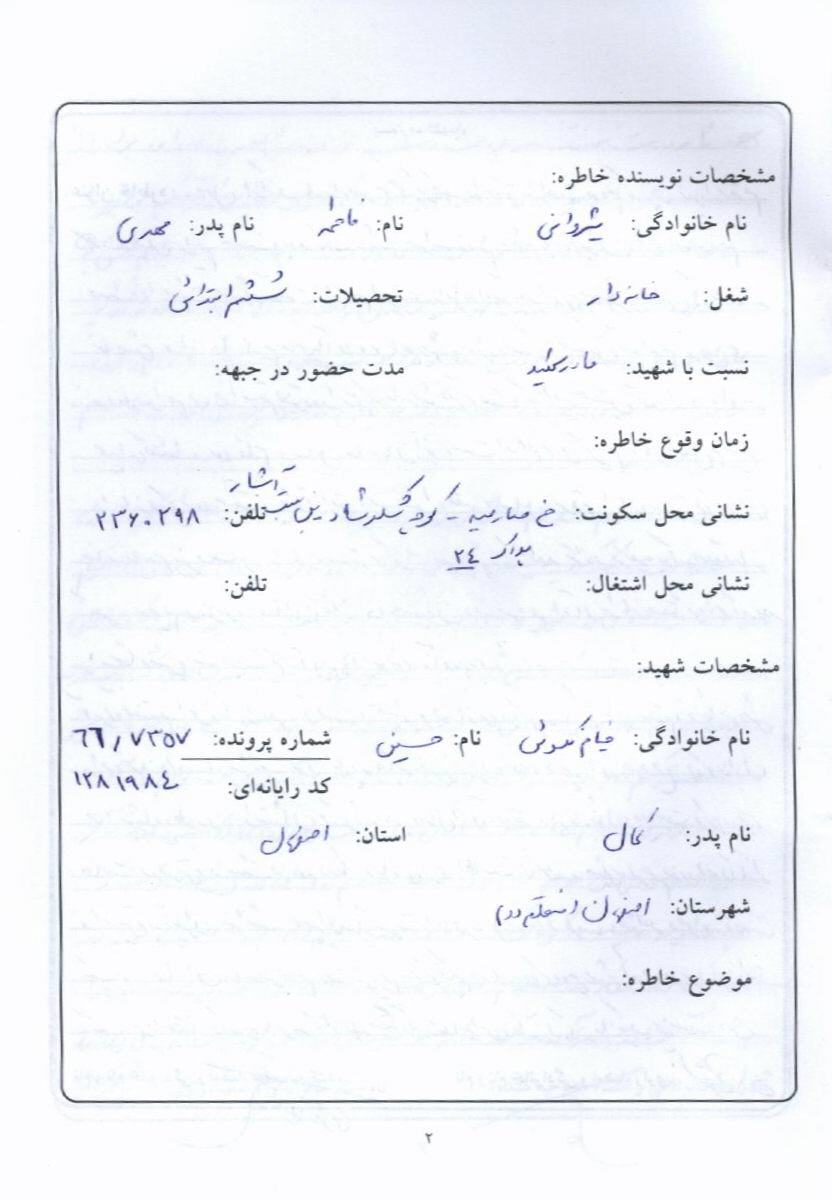 مشخصات نویسنده خاطره:
نام خانوادگی: شیروانی نام: فاطمه نام پدر: مهدی
شغل: خانه دار تحصیلات: ششم ابتدائی
نسبت با شهید: مادر شهید مدت حضور در جبهه:
زمان وقوع خاطره:
نشانی محل سکونت: خ کوچه بن بست آبشار تلفن: ۲۳۶۰۲۹۸
پلاک ۲۴
نشانی محل اشتغال: تلفن:
مشخصات شهید:
نام خانوادگی: خیام نکوئی نام: حسین شماره پرونده: ۶۶/۷۳۵۷
کد رایانه‌ای: ۱۲۸۱۹۸۴
نام پدر: کمال استان: اصفهان
شهرستان: اصفهان (منطقه دو)
موضوع خاطره:
۲